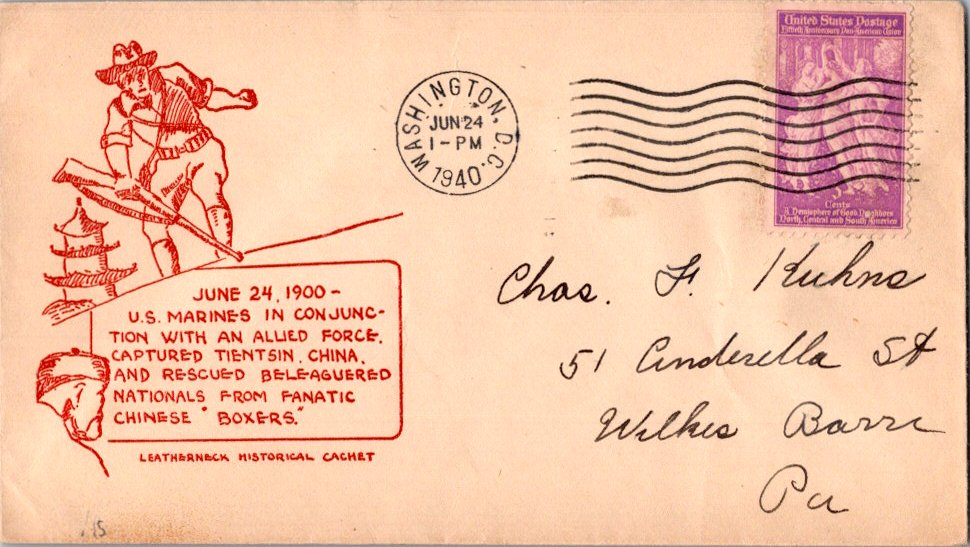 United States Postage
Fiftieth Anniversary Pan-American Union
Cents
A Hemisphere of Good Neighbors
North, Central and South America
WASHINGTON, D.C.
JUN 24
1-PM
1940
JUNE 24, 1900-
U.S. MARINES IN CONJUNC-
TION WITH AN ALLIED FORCE,
CAPTURED TIENTSIN, CHINA,
AND RESCUED BELEAGUERED
NATIONALS FROM FANATIC
CHINESE "BOXERS."
LEATHERNECK HISTORICAL CACHET
Chas. F. Kuhns
51 Cinderella St
Wilkes Barre
Pa
15